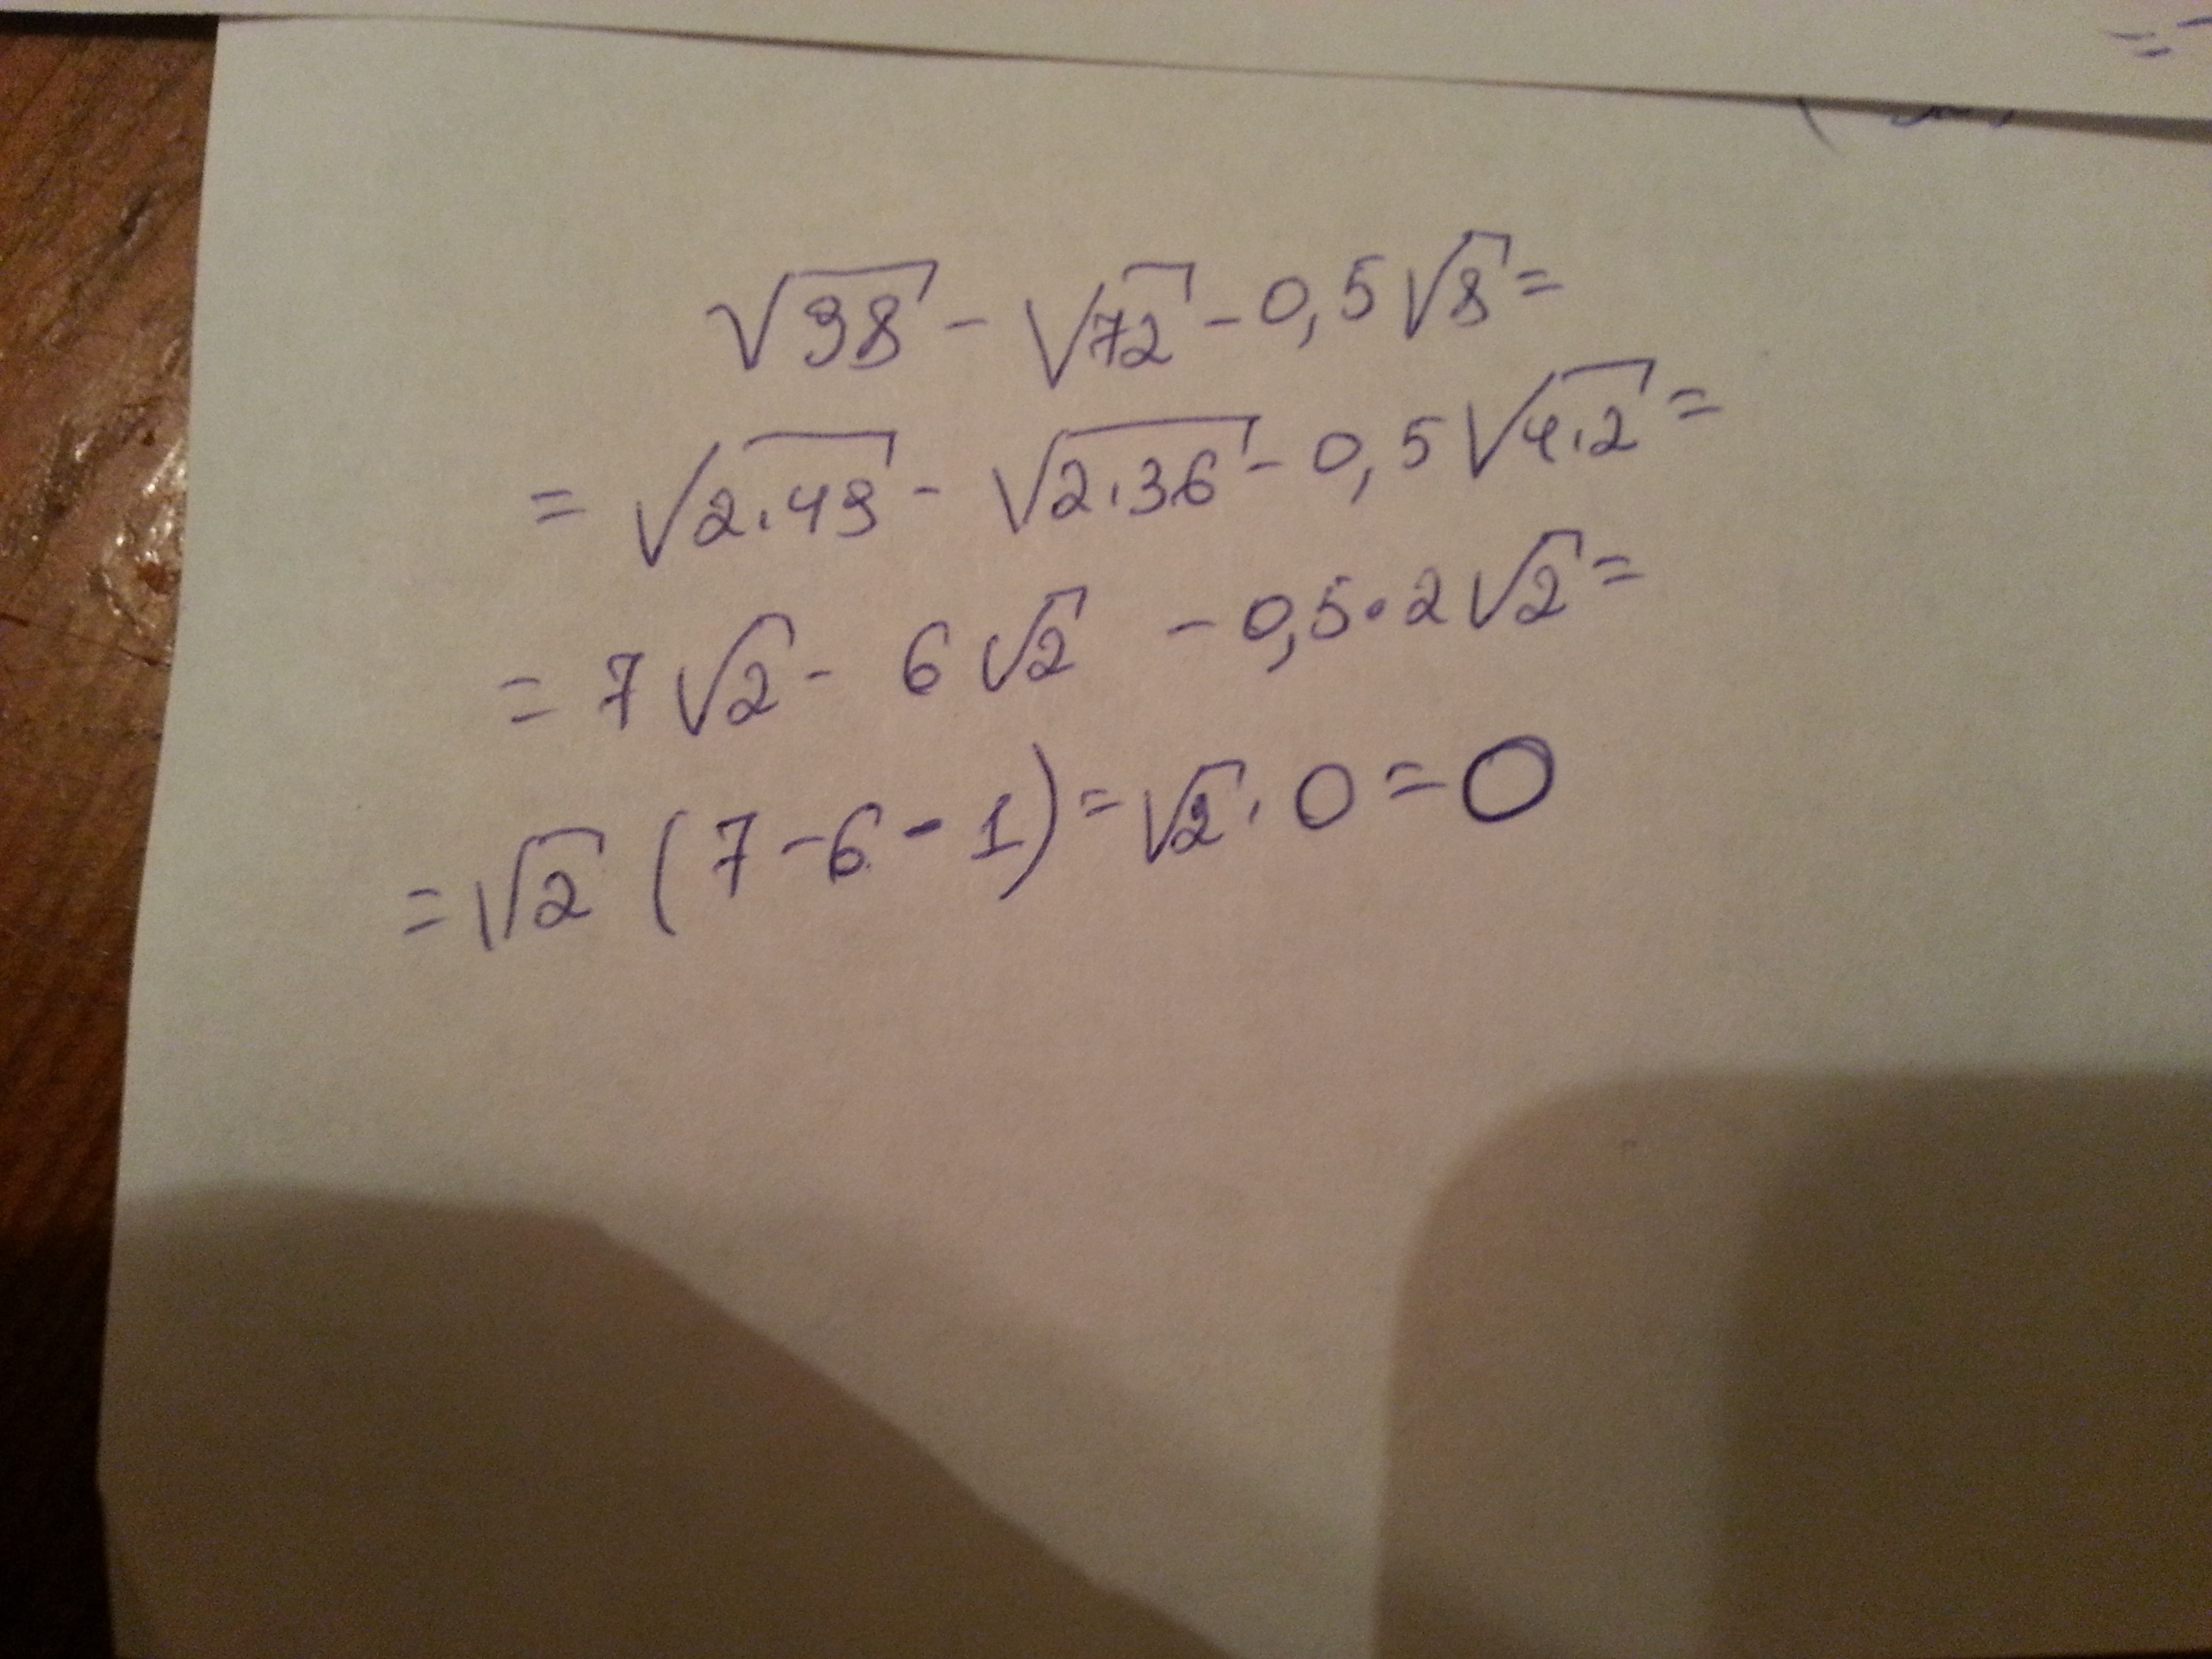 √98 - √72 - 0,5√8 =
= √2·49 - √2·36 - 0,5√4·2 =
= 7√2 - 6√2 - 0,5·2√2 =
= √2 (7-6-1) = √2·0 = 0